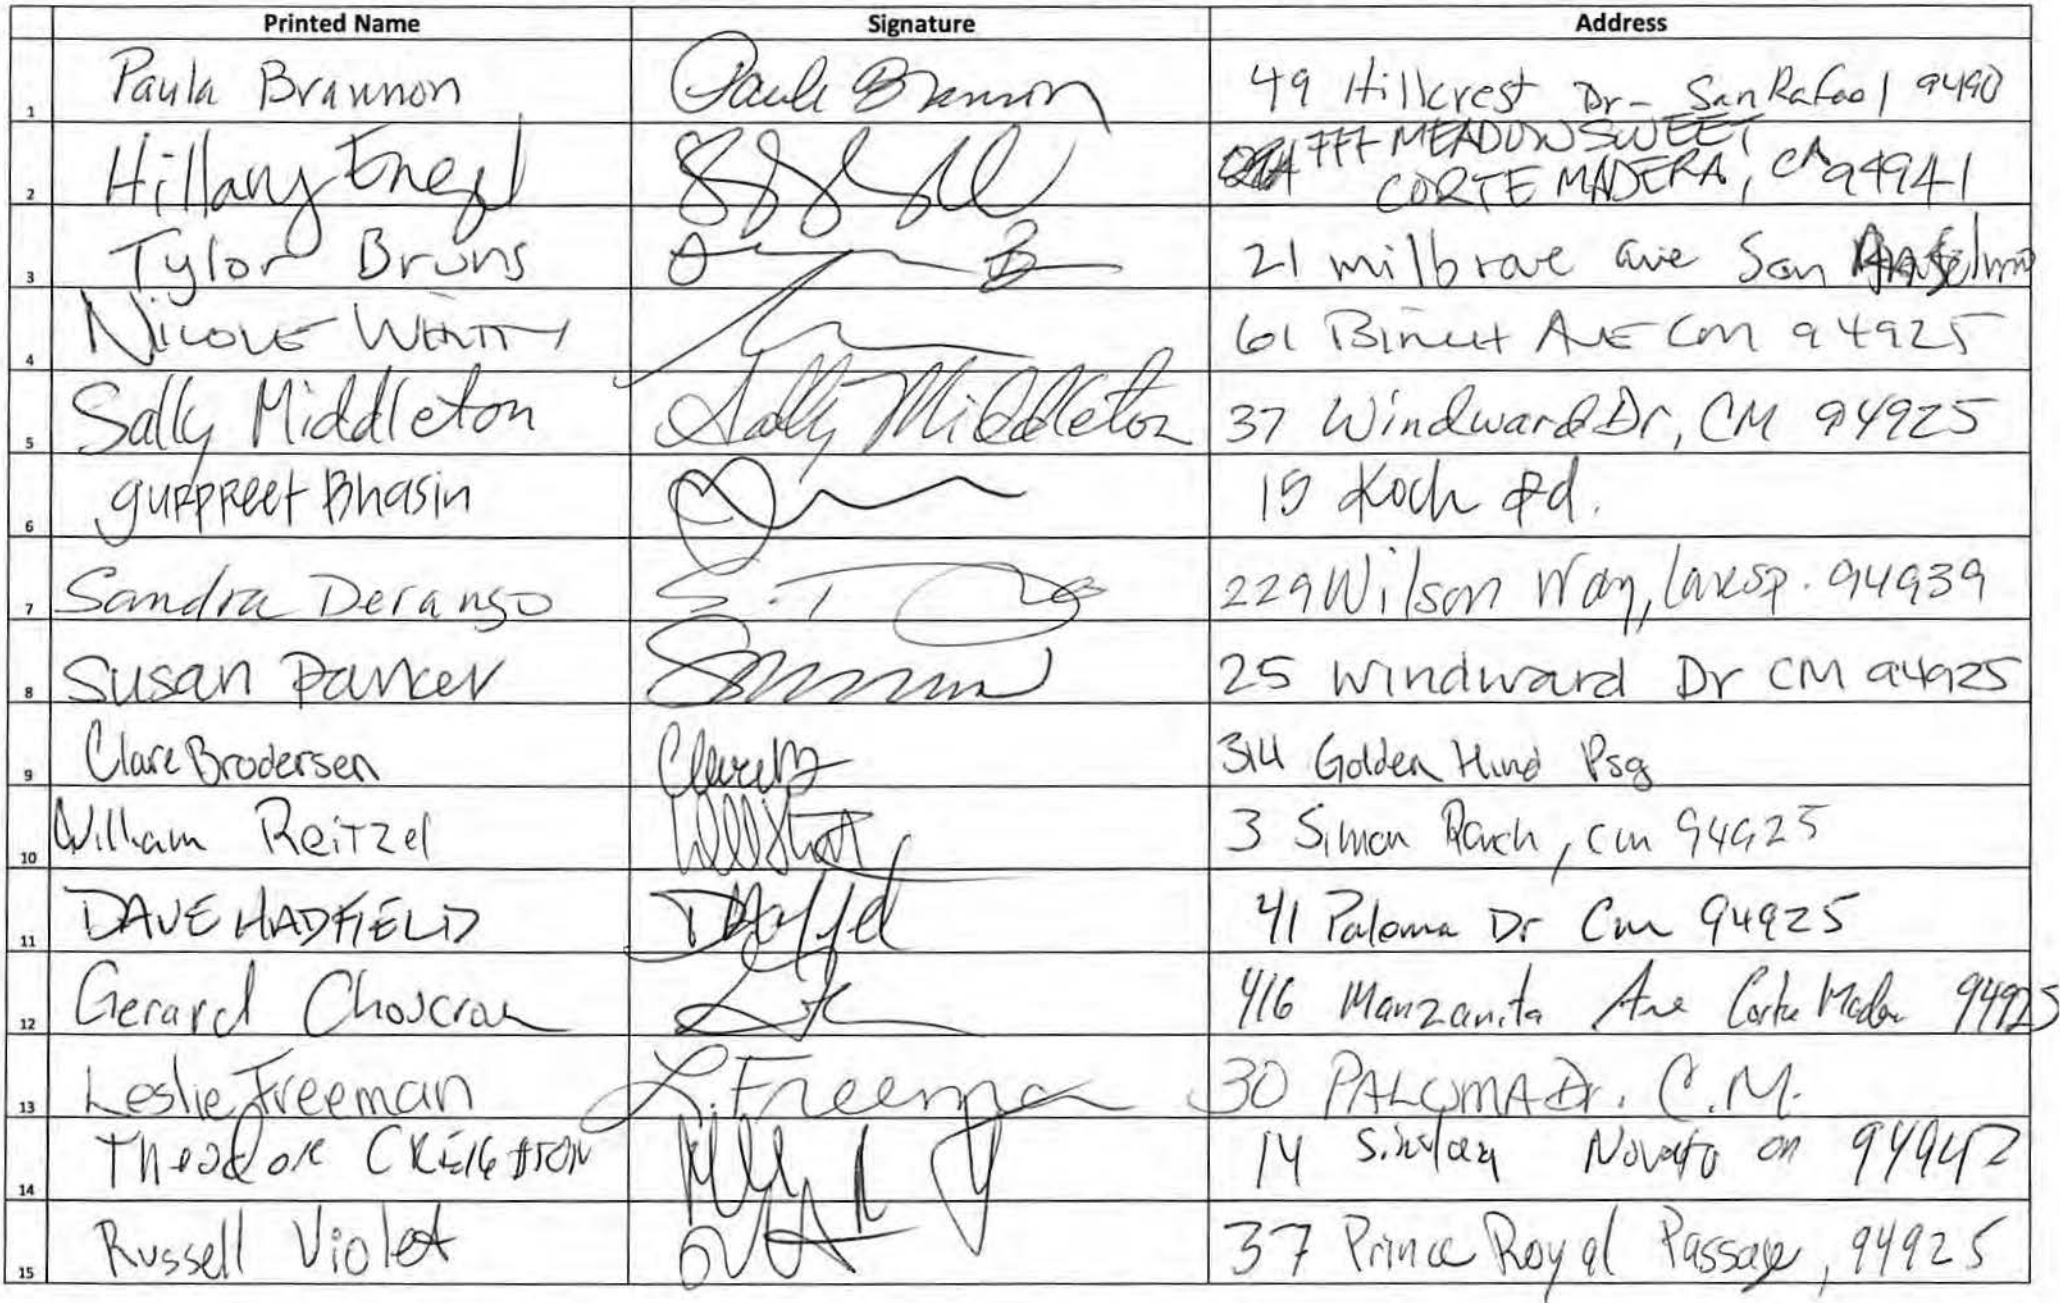 Printed Name Signature Address
1 Paula Brannon Paula Brannon 49 Hillcrest Dr - San Rafael 9490
777 MEADOWSWEET
2 Hillary Engel CORTE MADERA, CA 94941
3 Tylor Bruns B 21 milbrae ave San Anselmo
4 NICOLE 61 Ave CM 94925
5 Sally Middleton Sally Middleton 37 Windward Dr, CM 94925
6 gurpreet Bhasin 15 Koch Rd.
7 Sandra Derango 229 Wilson Way, Larksp. 94939
8 Susan Parker 25 Windward Dr CM 94925
9 Clare Brodersen 314 Golden Hind Psg
10 William Reitzel 3 Simon Ranch, cm 94925
11 DAVE HADFIELD 41 Paloma Dr Cm 94925
12 Gerard 416 Manzanita Ave Corte Madera 94925
13 Leslie Freeman L. Freeman 30 PALOMA Dr. C.M.
14 Theodore CREIGHTON 14 Novato 94947
15 Russell Violet 37 Prince Royal Passage, 94925